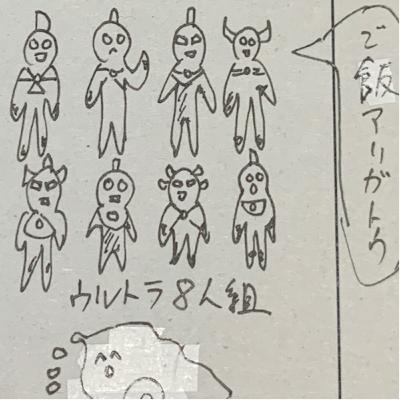 ご飯アリガトウ
ウルトラ8人組